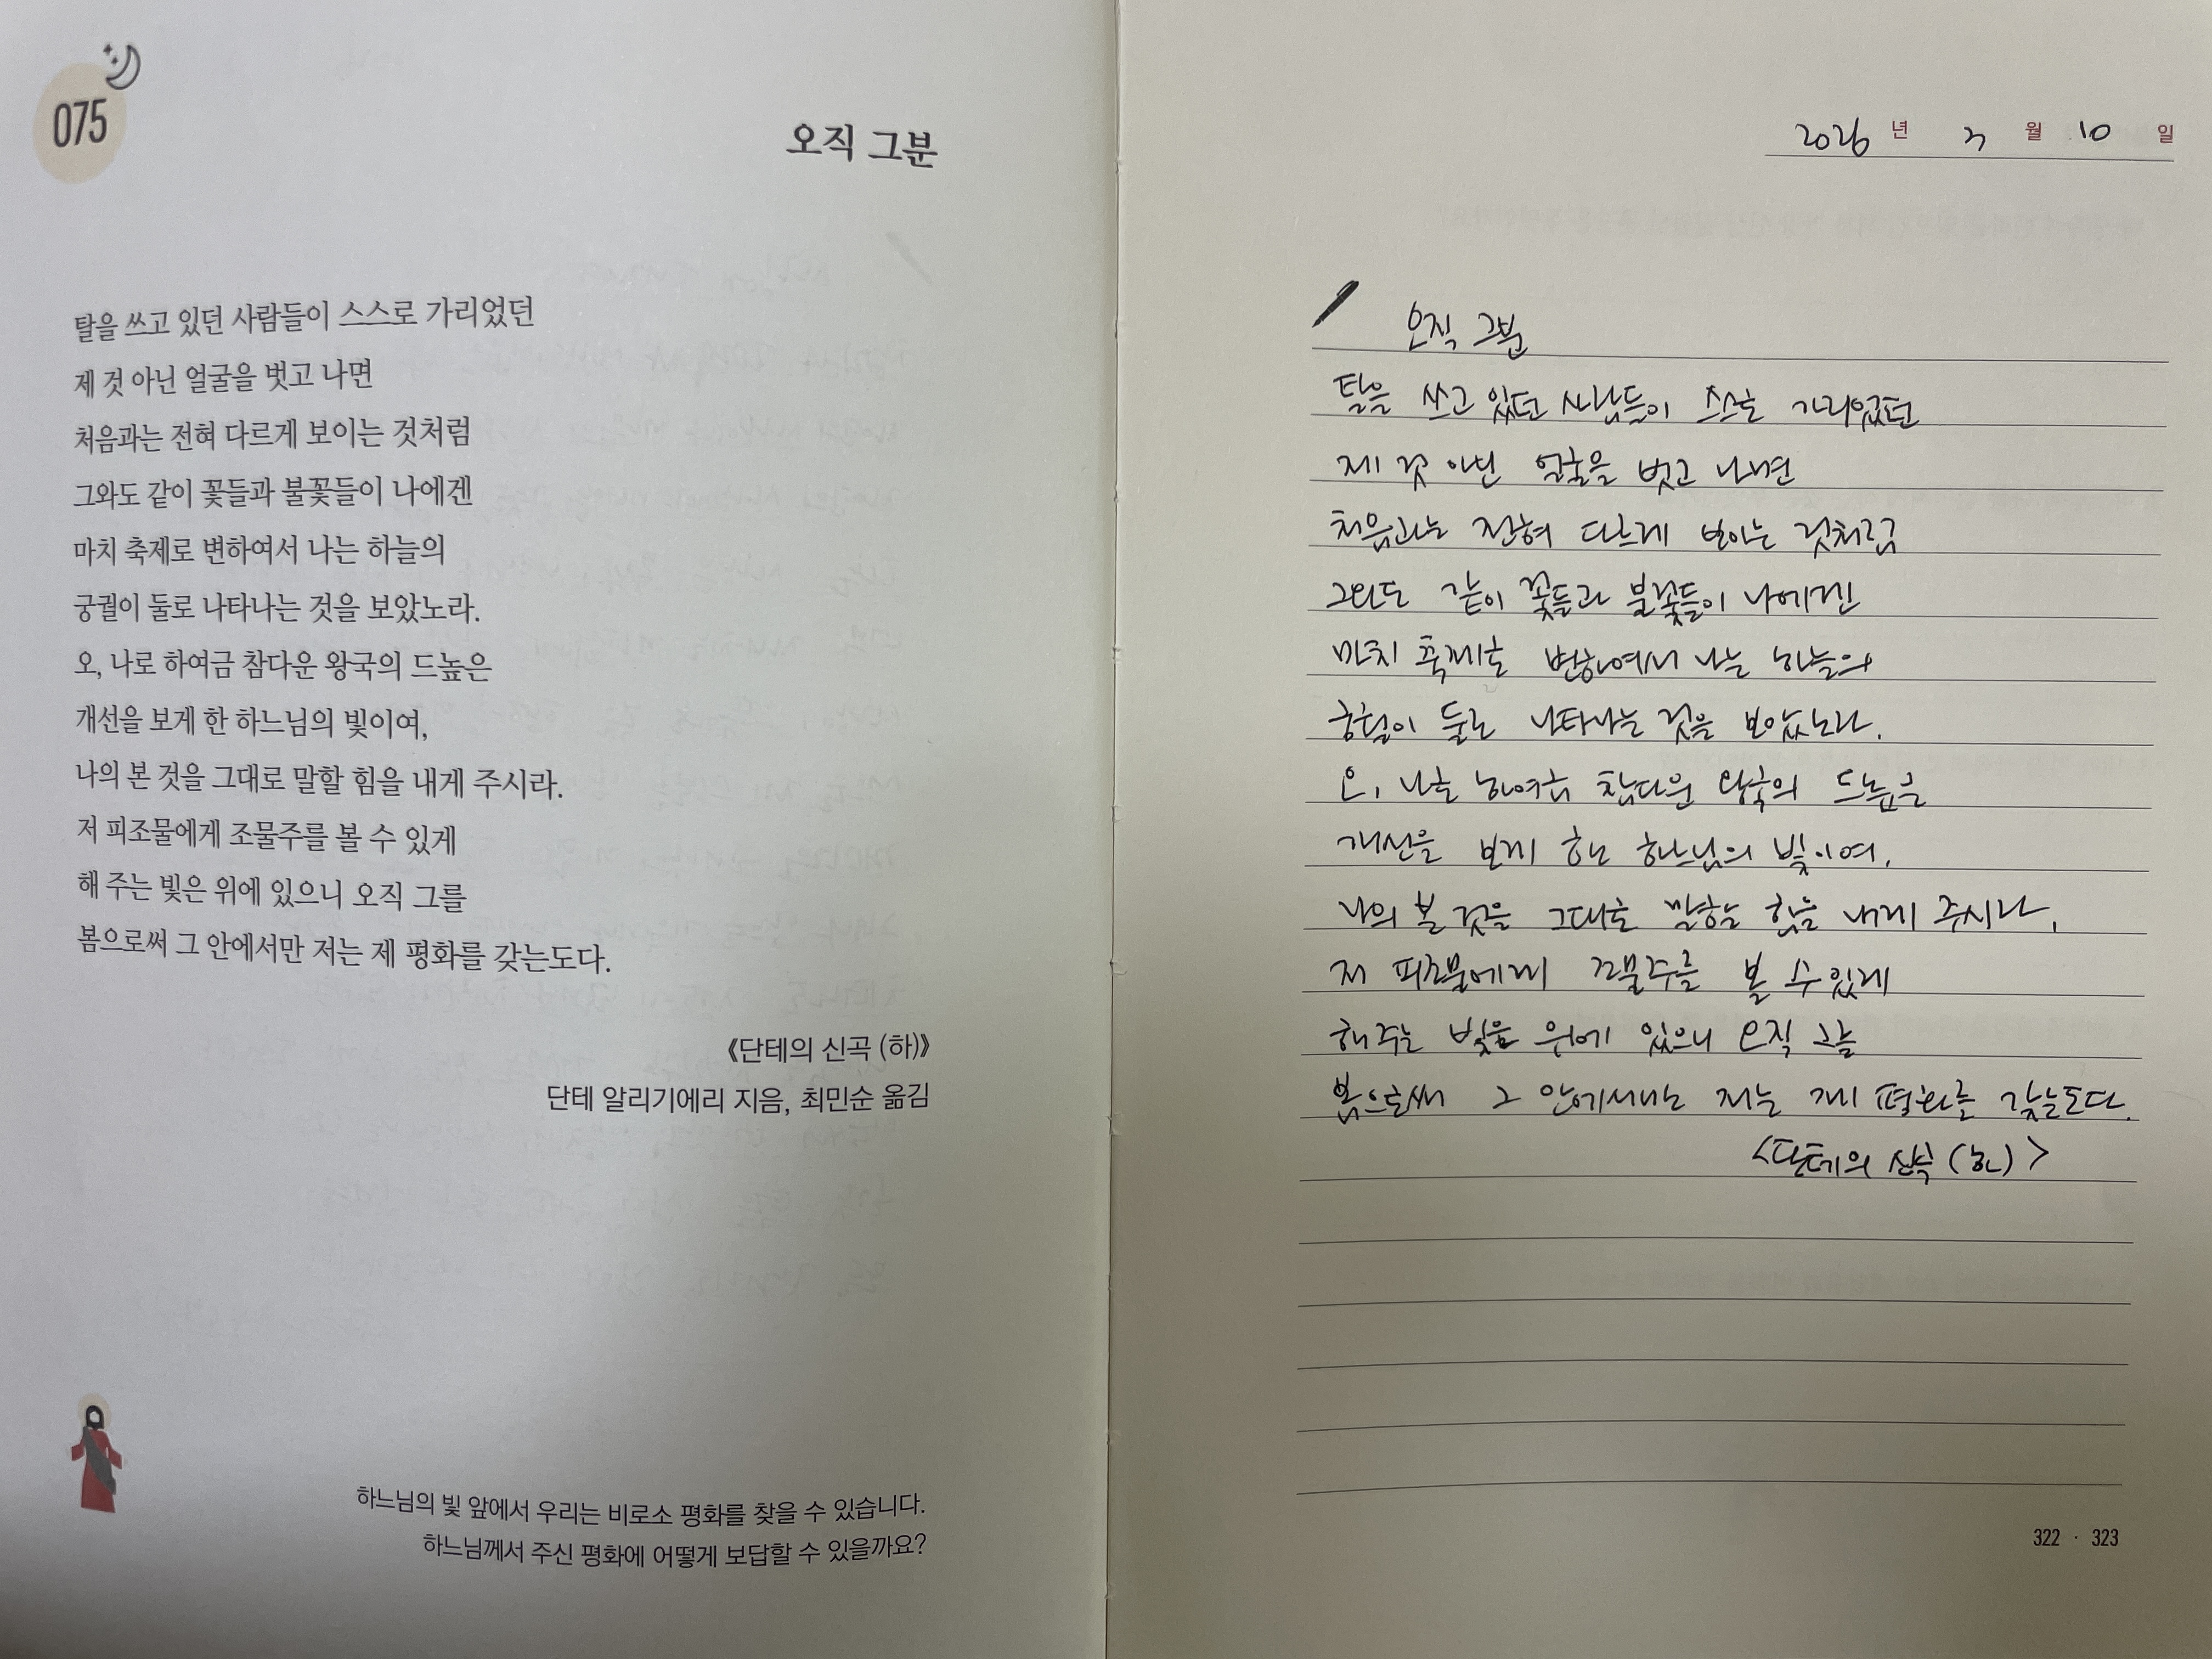 075
오직 그분
탈을 쓰고 있던 사람들이 스스로 가리었던
제 것 아닌 얼굴을 벗고 나면
처음과는 전혀 다르게 보이는 것처럼
그와도 같이 꽃들과 불꽃들이 나에겐
마치 축제로 변하여서 나는 하늘의
궁궐이 둘로 나타나는 것을 보았노라.
오, 나로 하여금 참다운 왕국의 드높은
개선을 보게 한 하느님의 빛이여,
나의 본 것을 그대로 말할 힘을 내게 주시라.
저 피조물에게 조물주를 볼 수 있게
해 주는 빛은 위에 있으니 오직 그를
봄으로써 그 안에서만 저는 제 평화를 갖는도다.
《단테의 신곡 (하)》
단테 알리기에리 지음, 최민순 옮김
하느님의 빛 앞에서 우리는 비로소 평화를 찾을 수 있습니다.
하느님께서 주신 평화에 어떻게 보답할 수 있을까요?
2026 년 월 10 일
오직 그분
탈을 쓰고 있던 사람들이 스스로 가리었던
제 것 아닌 얼굴을 벗고 나면
처음과는 전혀 다르게 보이는 것처럼
그와도 같이 꽃들과 불꽃들이 나에겐
마치 축제로 변하여서 나는 하늘의
궁궐이 둘로 나타나는 것을 보았노라.
오, 나로 하여금 참다운 왕국의 드높은
개선을 보게 한 하느님의 빛이여,
나의 본 것을 그대로 말할 힘을 내게 주시라.
저 피조물에게 조물주를 볼 수 있게
해 주는 빛은 위에 있으니 오직 그를
봄으로써 그 안에서만 저는 제 평화를 갖는도다.
<단테의 신곡 (하)>
322 · 323